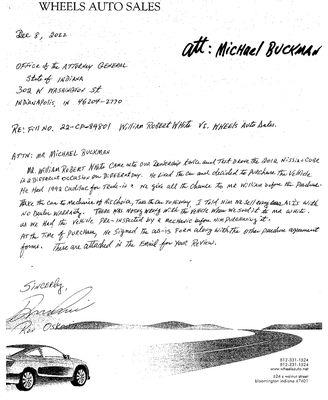 WHEELS AUTO SALES
Dec 8, 2022
att: Michael BUCKMAN
OFFICE of the ATTORNEY GENERAL
State of INDIANA
302 W WASHINGTON St
INDIANAPOLIS, IN 46204-2770
Re: Fill NO. 22-CP-84801 William Robert White Vs. WHEELS Auto Sales.
ATTN: MR MICHAEL BUCKMAN
Mr. William Robert White Came into our Dealership twice and Test Drove the 2012 Nissan Cube
in a Different occasion on Different Day. He liked the car and decided to Purchase the Vehicle.
He Had 1992 Cadillac for Trade-in. We give all the chance to Mr William before the Purchase
Take the car to Mechanic of His Choice, Take the car to Highway. I told Him we Sell every cars As Is with
No Dealer Warranty. There was Noting wrong with the Vehicle when we sold it to Mr White.
as we Had the Vehicle Pre-inspected by a Mechanic before Him Purchasing it.
At the time of Purchase, He Signed the as-is Form along with the other purchase agreement
forms. These are attached in the Email for your Review.
Sincerely,
812-331-1524
812-331-1524
www.wheelsauto.net
bloomington indiana 47401